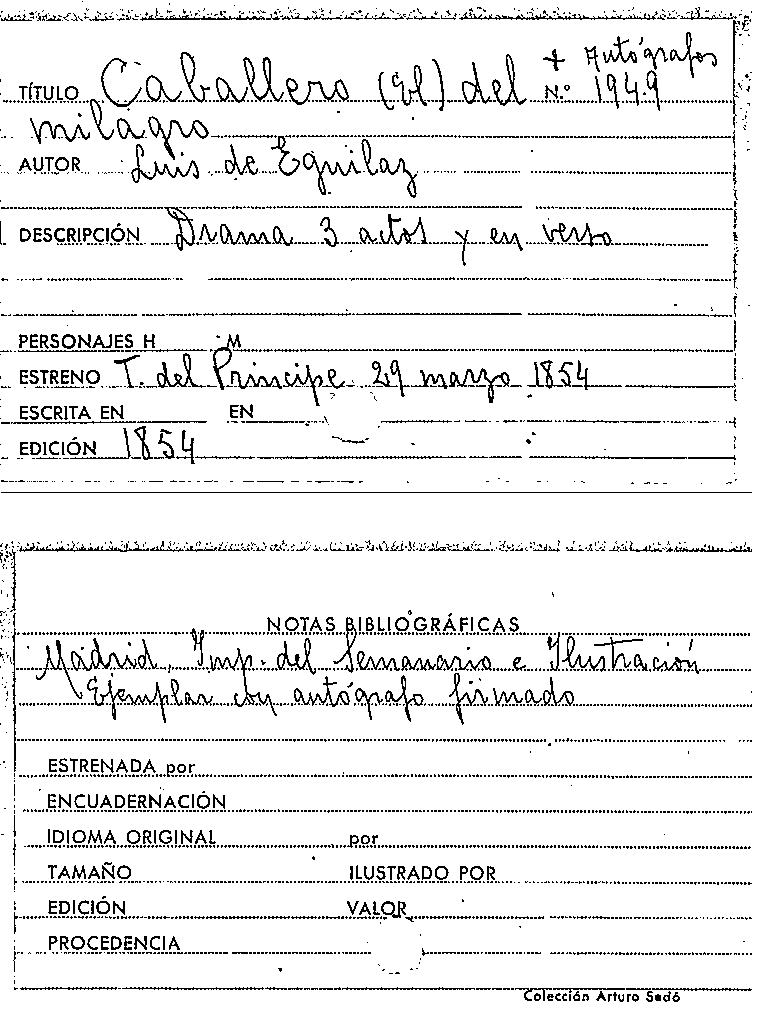 + Autógrafos
TÍTULO Caballero (El) del N.º 1949
milagro
AUTOR Luis de Eguilaz
DESCRIPCIÓN Drama 3 actos y en verso
PERSONAJES H M
ESTRENO T. del Príncipe 29 marzo 1854
ESCRITA EN EN
EDICIÓN 1854
NOTAS BIBLIOGRÁFICAS
Madrid, Imp. del Semanario e Ilustración
Ejemplar con autógrafo firmado
ESTRENADA por
ENCUADERNACIÓN
IDIOMA ORIGINAL por
TAMAÑO ILUSTRADO POR
EDICIÓN VALOR
PROCEDENCIA
Colección Arturo Sedó